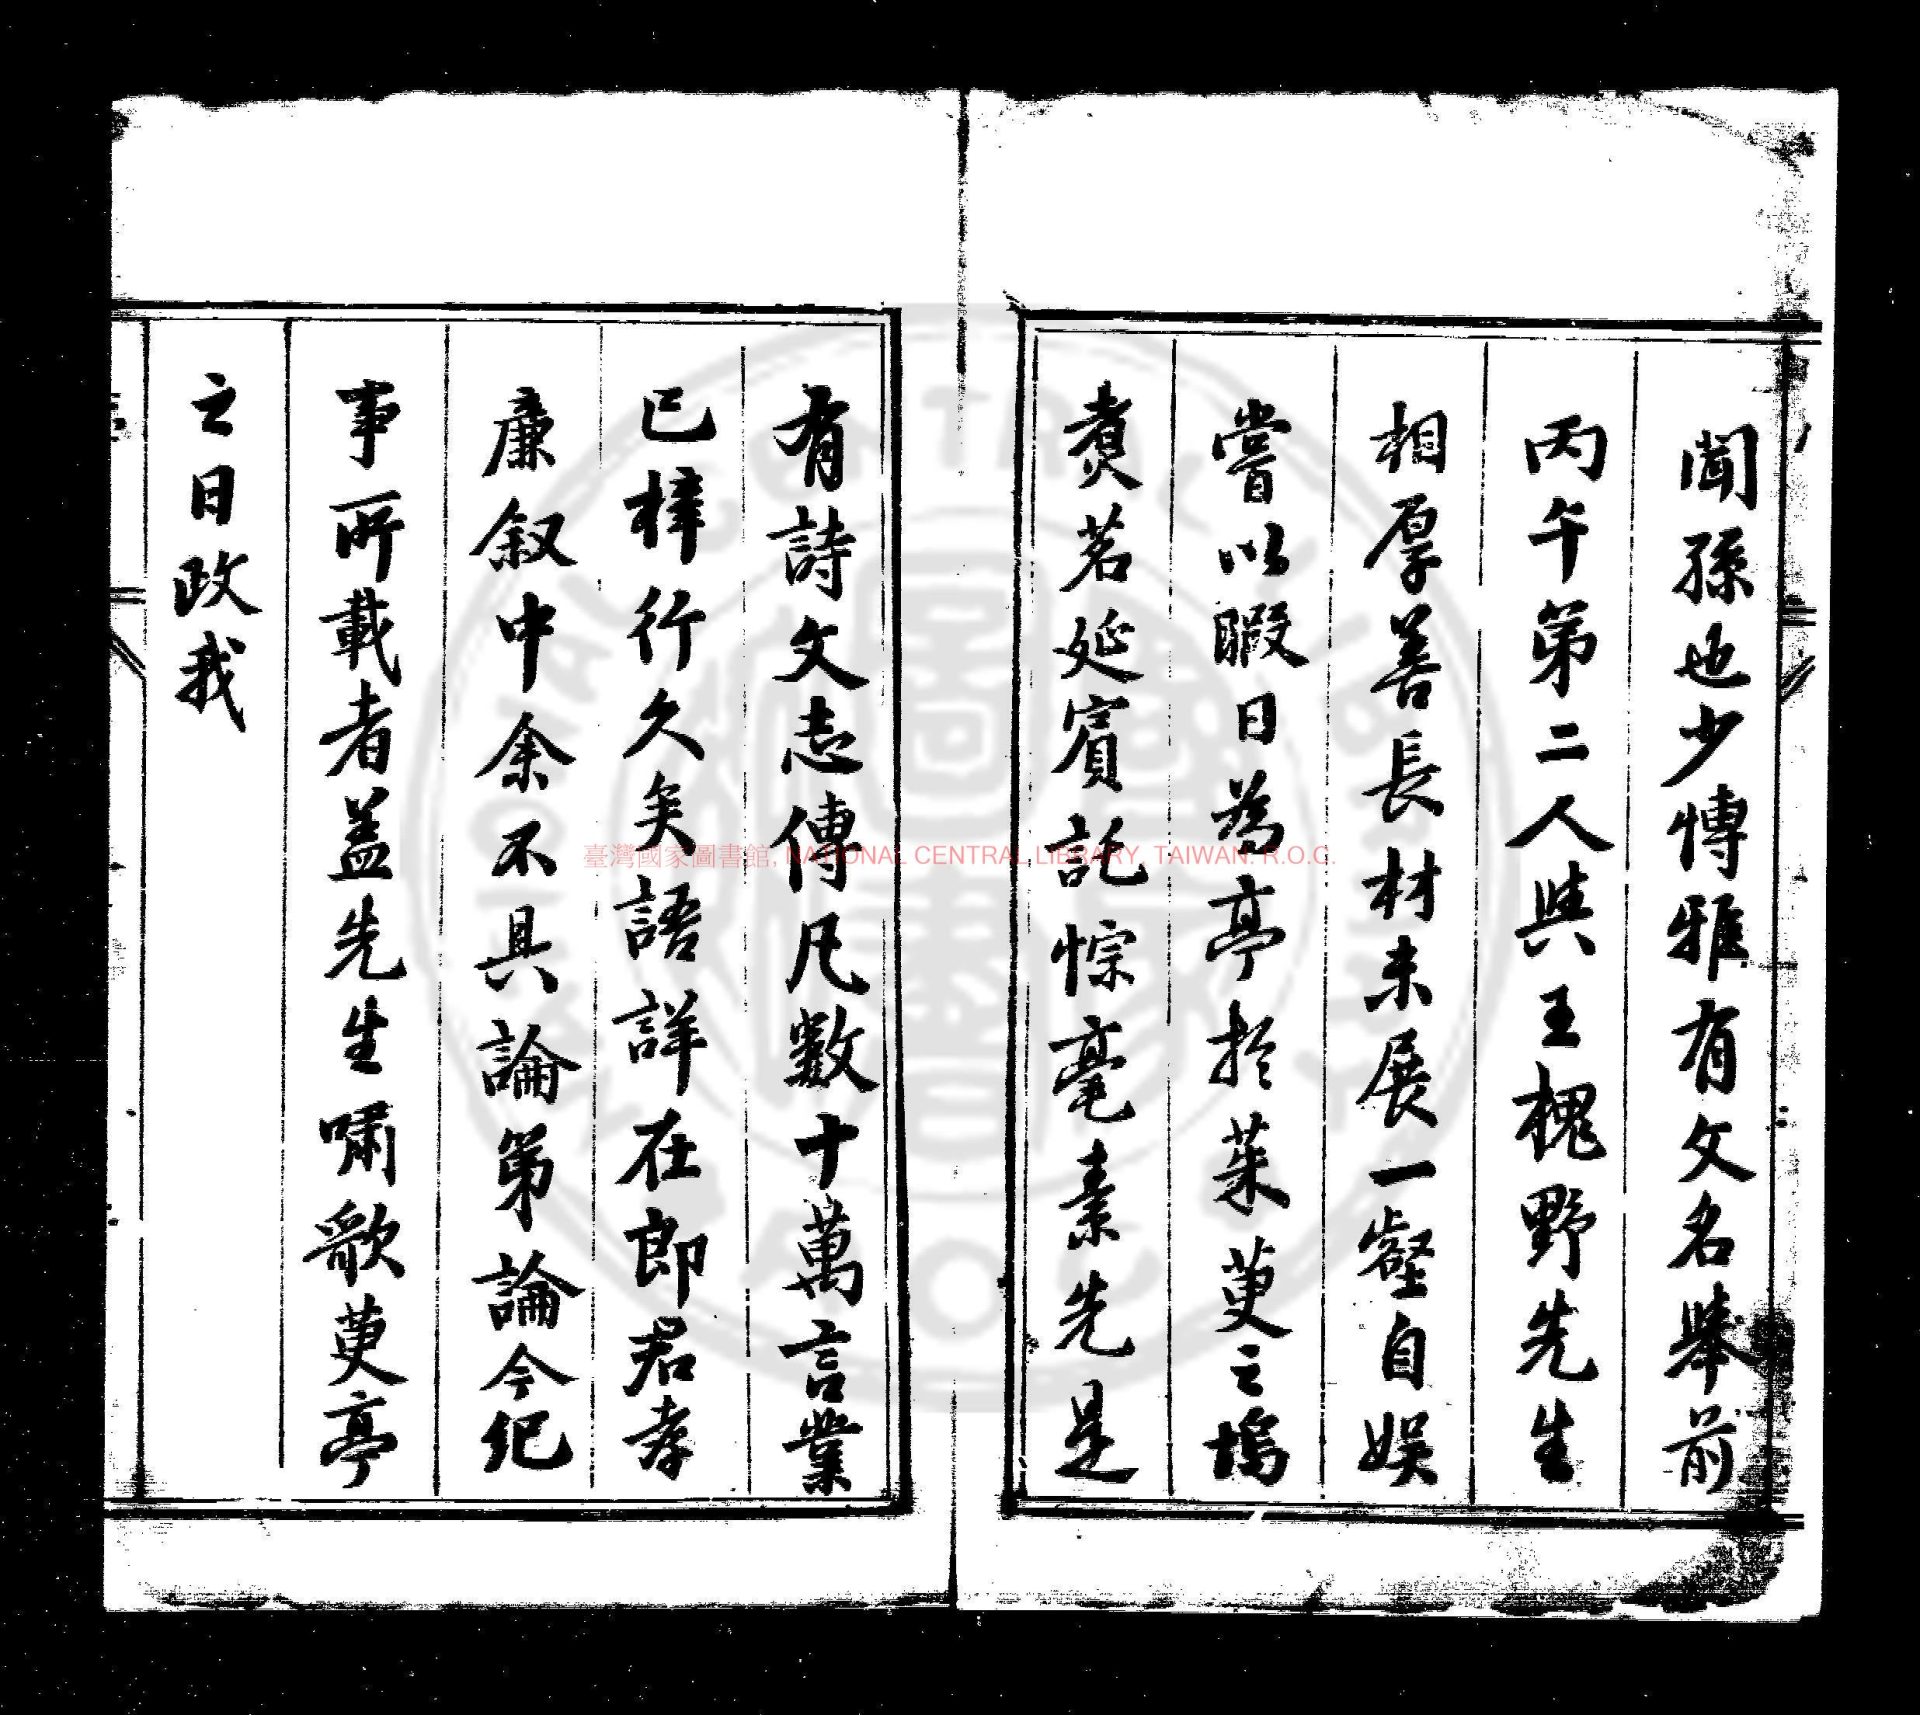 聞孫也少博雅有文名舉前
丙午第二人與王槐野先生
相厚善長材未展一壑自娛
嘗以暇日為亭於茱萸之塢
煑茗延賓託悰毫素先是
有詩文志傳凡數十萬言業
已梓行久矣語詳在郎君孝
廉叙中余不具論第論今紀
事所載者盖先生嘯歌萸亭
之日政我
臺灣國家圖書館, NATIONAL CENTRAL LIBRARY, TAIWAN. R.O.C.